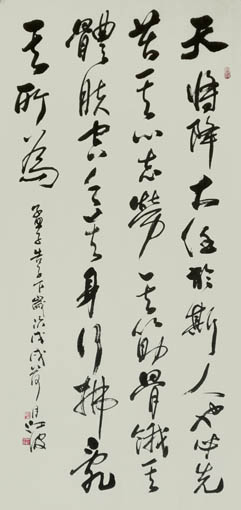 天將降大任於斯人也必先
苦其心志勞其筋骨餓其
體膚空乏其身行拂亂
其所為
孟子告子下歲次戊戌荷月江波